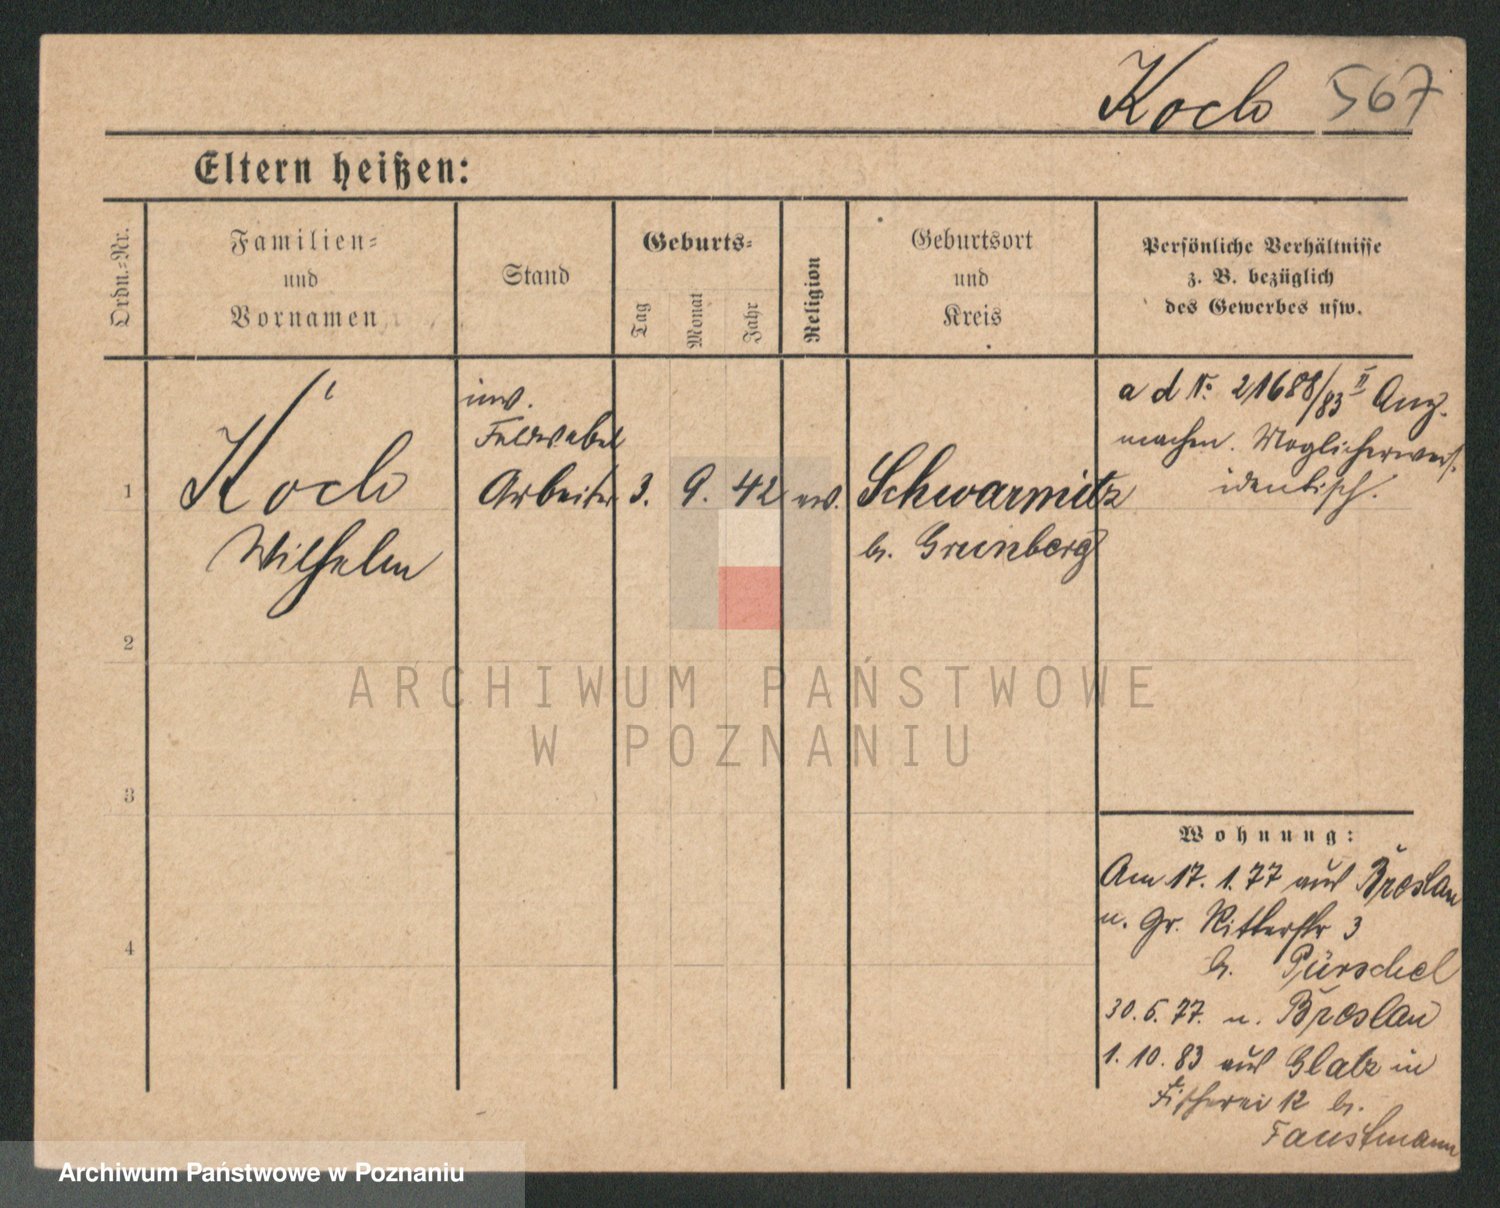 Koch 567
Eltern heißen:
Ordn.-Nr.
Familien-
und
Vornamen
Stand
Geburts-
Tag
Monat
Jahr
Religion
Geburtsort
und
Kreis
Persönliche Verhältnisse
z. B. bezüglich
des Gewerbes usw.
1
Koch
Wilhelm
inv.
Feldwebel
Arbeiter
3. 9. 42
ev.
Schwarmitz
b. Grünberg
ad No 21688/83 II Anz.
machen. Möglicherweis.
identisch.
2
3
4
Wohnung:
Am 17. 1. 77 aus Breslau
n. Gr. Ritterstr 3
b. Pürschel
30. 6. 77. n. Breslau
1. 10. 83 aus Glatz in
Fischerei 12 b.
Faustmann
ARCHIWUM PAŃSTWOWE
W POZNANIU
Archiwum Państwowe w Poznaniu